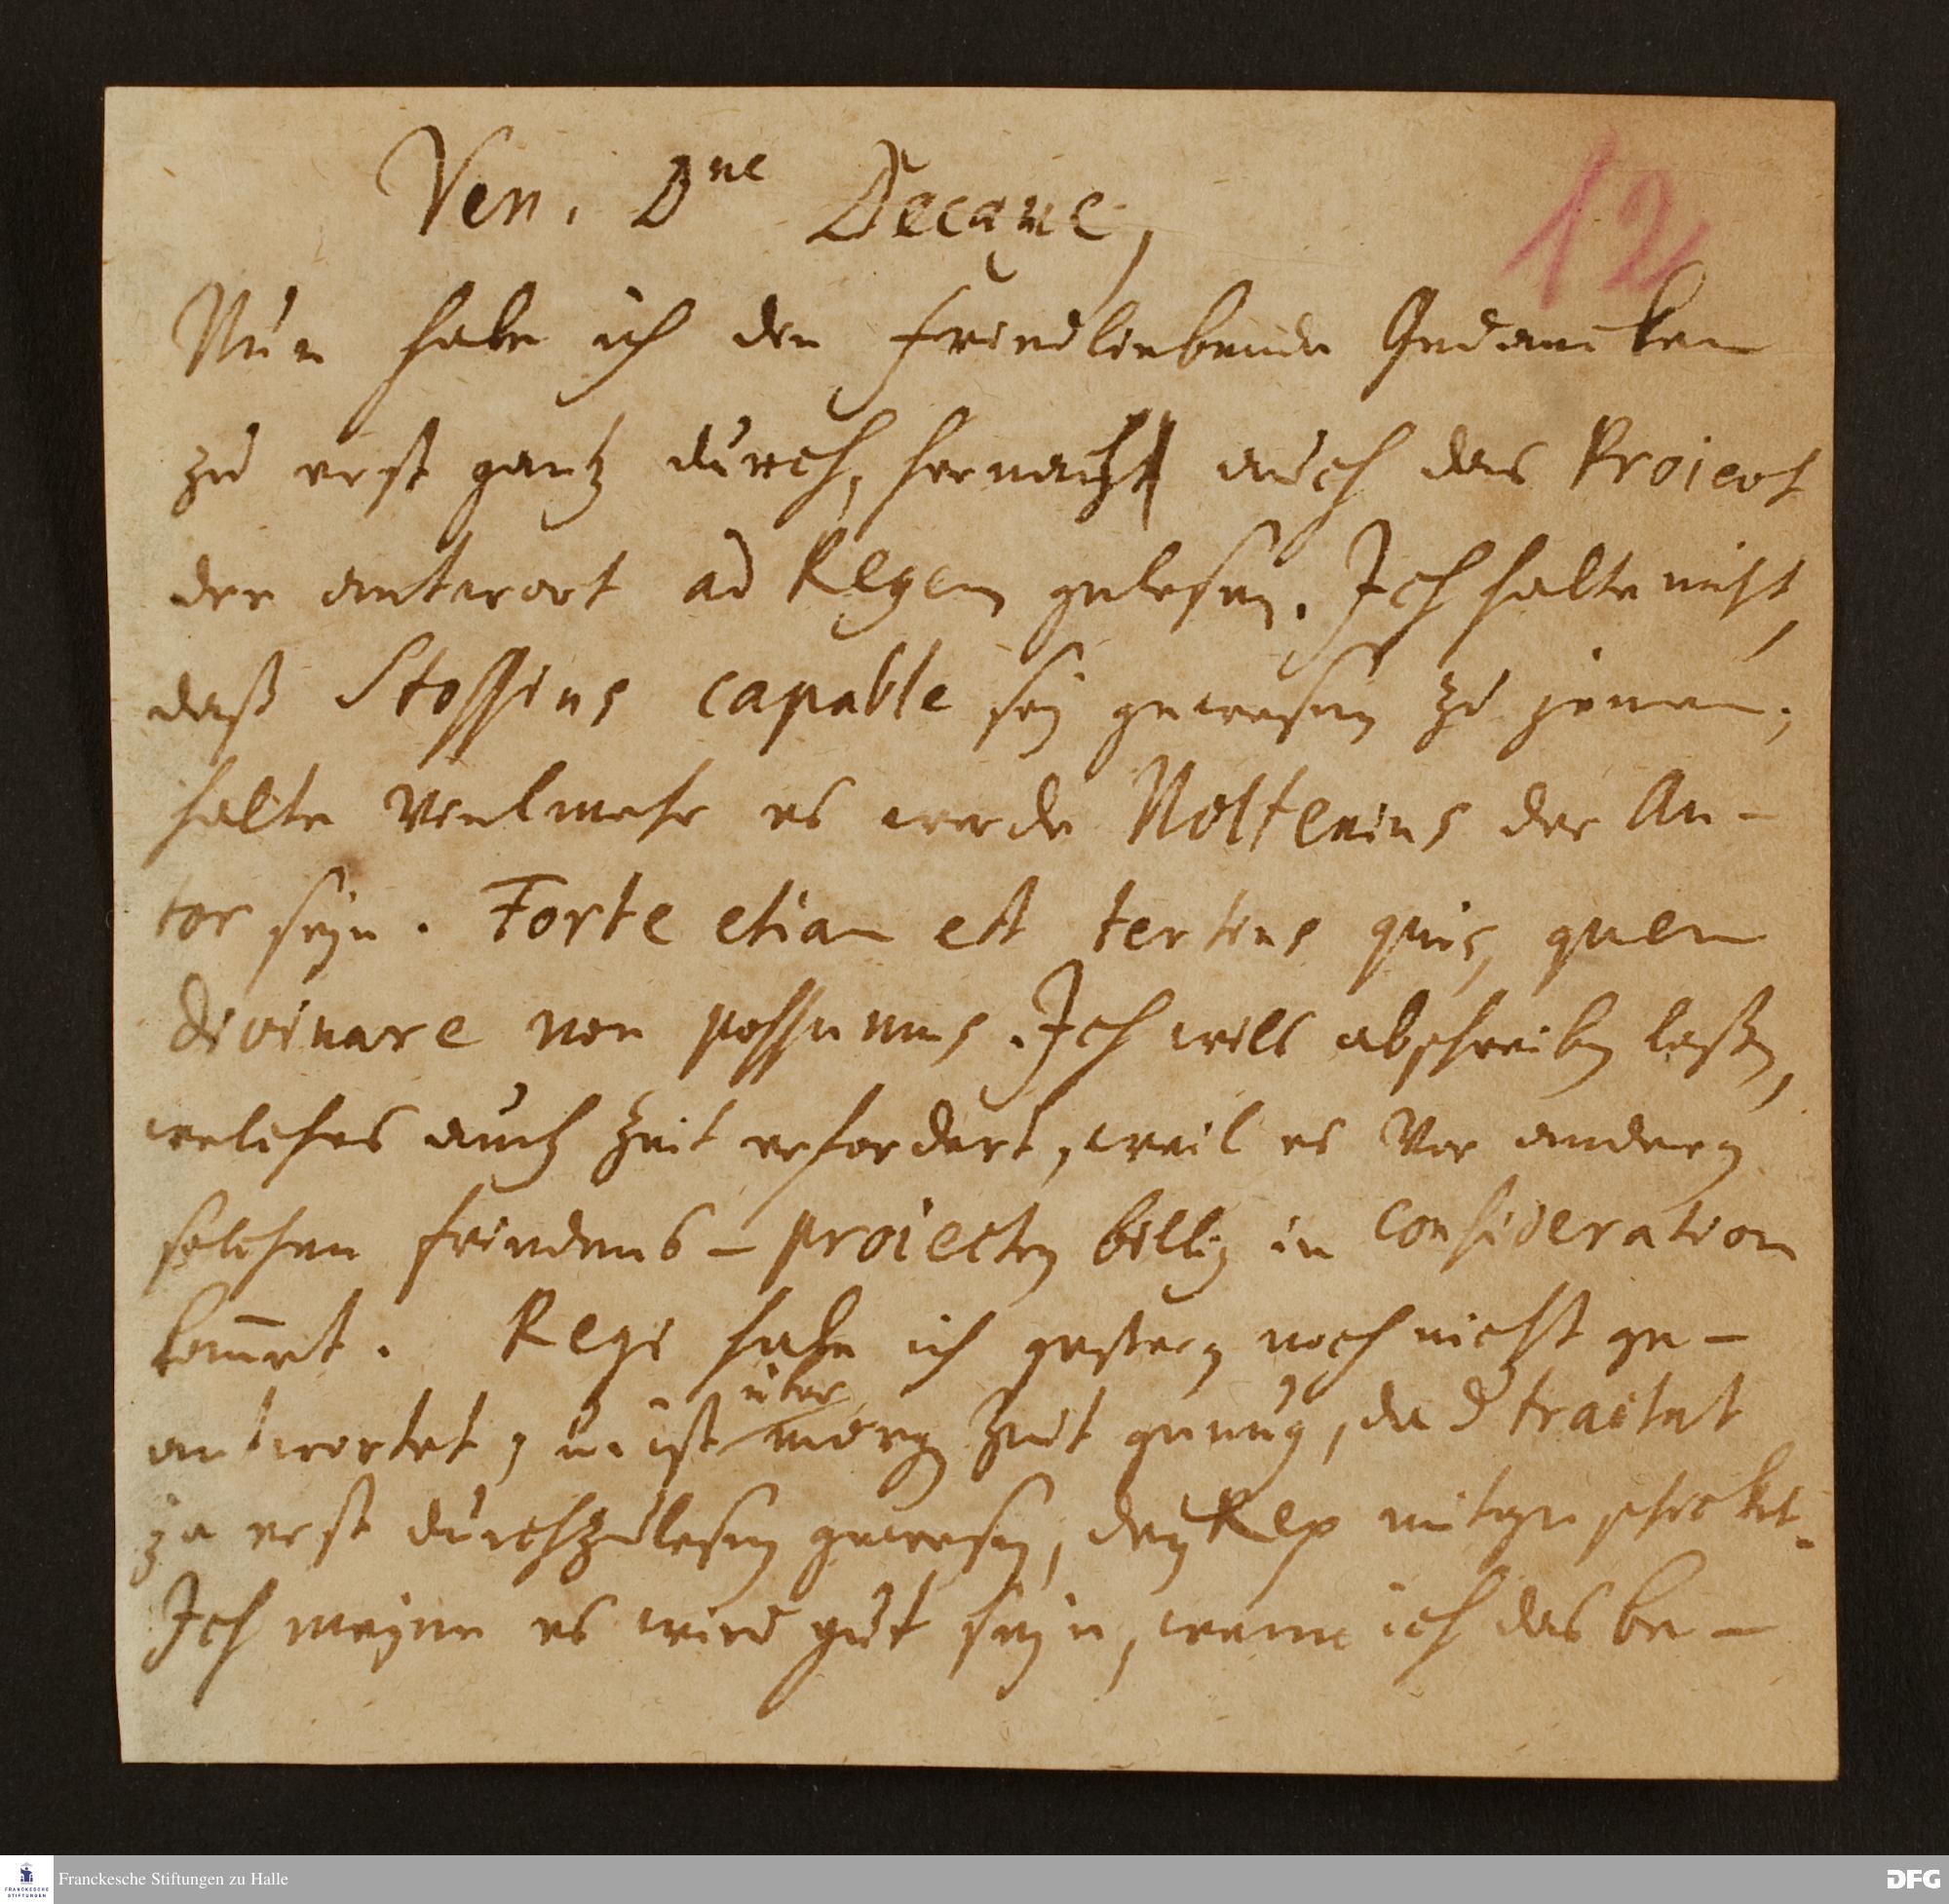 12
Ven. Dne Decane,
Nun habe ich den friedliebende Gedancken
zu erst gantz durch, hernach auch das Project
der antwort ad Regem gelesen. Ich halte nicht,
daß Stossius capable sey gewesen zu jenem;
halte vielmehr es werde Noltenius der Au-
tor seyn. Forte etiam est tertius quis, quem
divinare non possumus. Ich wills abschreiben laßen,
welches auch Zeit erfordert, weil es vor andern
solchen friedens-projecten billig in consideration
kom̅et. Regi habe ich gestern noch nicht ge-
antwortet, u. ist über
morgen Zeit genung, da d tractat
ja erst durchzulesen gewesen, den Rex mitgeschickt.
Ich meyne es wird gut seyn, wenn ich das be-
Franckesche Stiftungen zu Halle
DFG